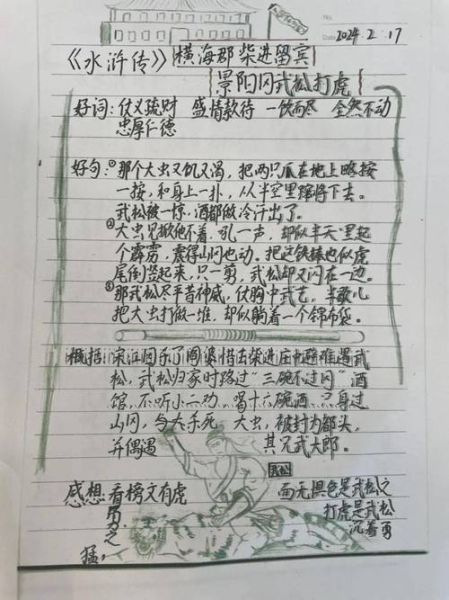 No.
Date
2024.2.17
《水浒传》横海郡柴进留宾
景阳冈武松打虎
好词：仗义疏财 盛情款待 一饮而尽 全然不动
忠厚仁德
好句：①那个大虫又饥又渴，把两只爪在地上略按
一按，和身上一扑，从半空里蹿将下来。
武松被一惊，酒都做冷汗出了。
②大虫见掀他不着，吼一声，却似半天里起
个霹雳，震得山冈也动。把这铁棒也似虎
尾倒竖起来，只一剪，武松却又闪在一边。
③那武松尽平昔神威，仗胸中武艺，半歇儿
把大虫打做一堆，却似躺着一个锦布袋。
概括：宋江因杀了阎婆惜去柴进庄中避难遇武
松，武松归家时路过"三碗不过冈"酒
馆，不听小二劝，喝十六碗酒，只身过
山冈，杀死大虫，被封为都头，
并偶遇其兄武大郎。
武松
感想：看榜文有虎 面无惧色是武松之
勇，打虎是武松
之 沉着勇
猛。